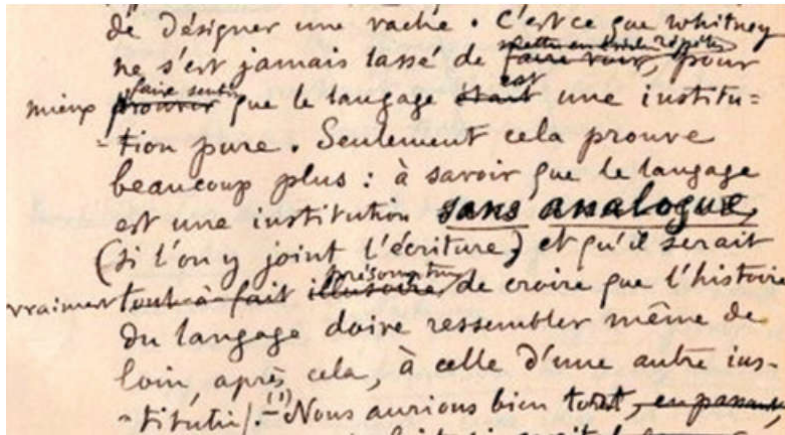 de désigner une vache. C'est ce que Whitney
ne s'est jamais lassé de répéter faire voir, pour
mieux faire sentir prouver que le langage est était une institu=
-tion pure. Seulement cela prouve
beaucoup plus : à savoir que le langage
est une institution sans analogue,
(si l'on y joint l'écriture,) et qu'il serait
vraiment tout-à-fait présomptueux illusoire de croire que l'histoire
du langage doive ressembler même de
loin, après cela, à celle d'une autre ins-
-titution. (1) Nous aurions bien tort, en passant,